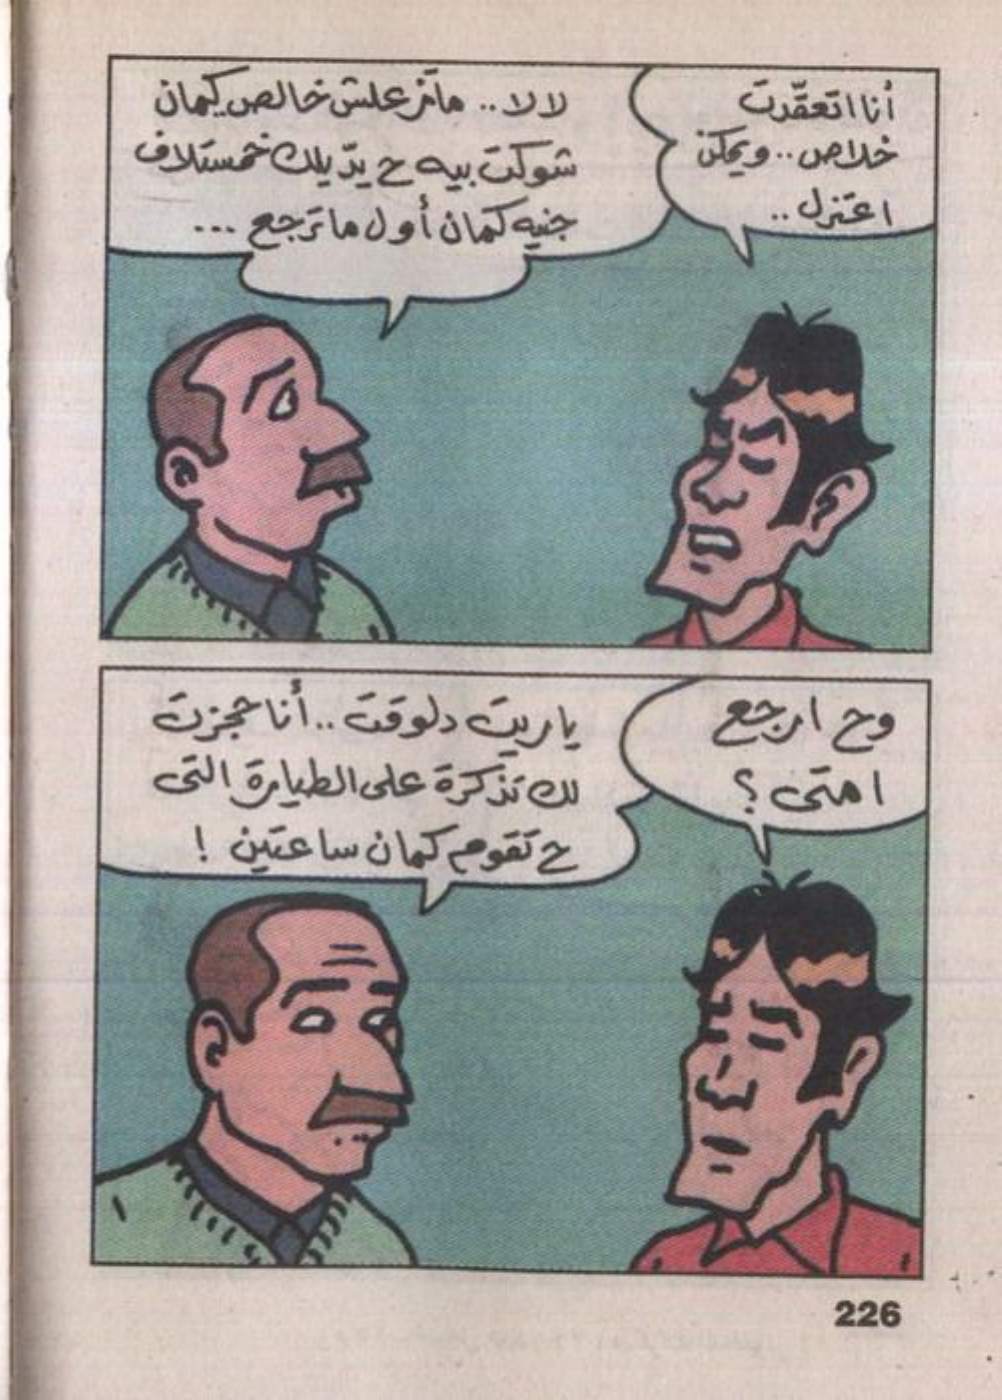 أنا اتعقّدت
خلاص.. ويمكن
اعتزل..
لا لا.. ماتزعلش خالص كمان
شوكت بيه ح يدّيلك خمستلاف
جنيه كمان أول ماترجع ...
وح ارجع
امتى؟
ياريت دلوقت.. أنا حجزت
لك تذكرة على الطيارة التى
ح تقوم كمان ساعتين !
226